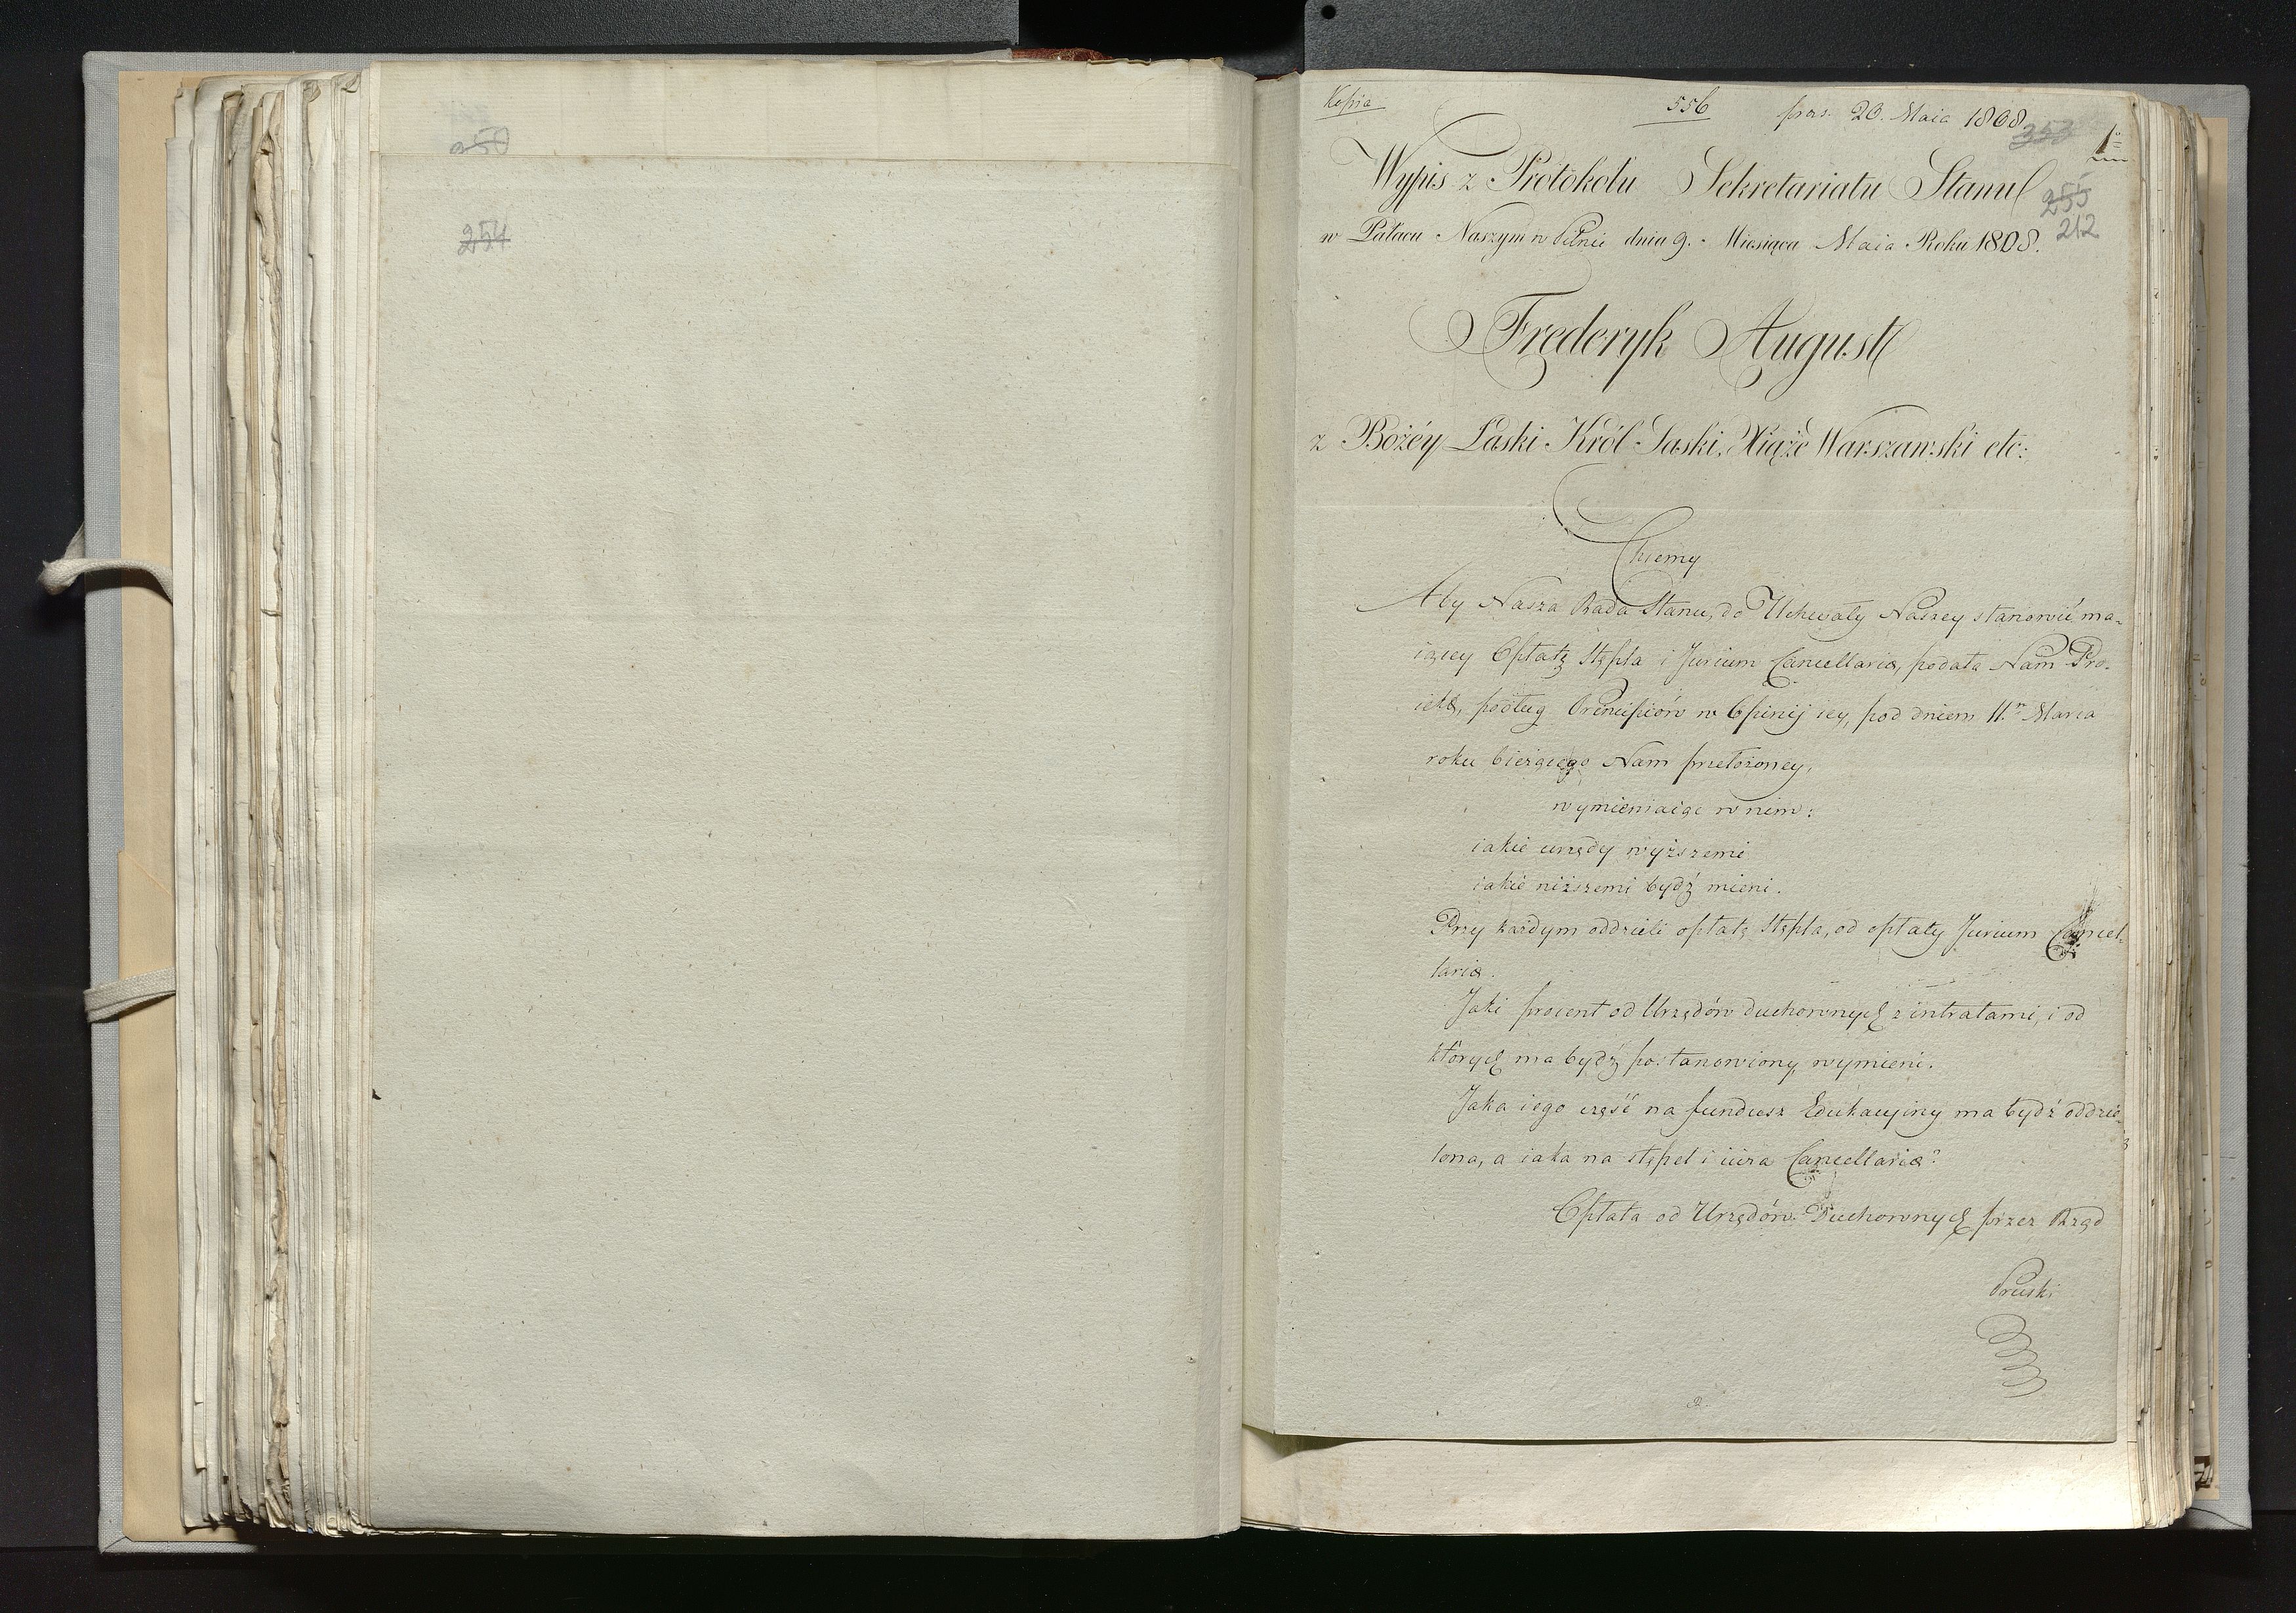 250
254
Kopia
556
pras. 20. Maia 1808
353
1
Wypis z Protokołu Sekretariatu Stanu
255
212
w Pałacu Naszym w Pilnie dnia 9. Miesiąca Maia Roku 1808.
Frederyk August
z Bożéy Łaski Król Saski, Xiąże Warszawski etc:
Chcemy
Aby Nasza Rada Stanu, do Uchwały Naszey stanowić ma-
iącey Opłatę Stępla i Jurium Cancellariæ, podała Nam Pro-
iekt, podług Princípiów w Opinij iey, pod dniem 11.n Marca
roku bieżącego Nam przełożoney,
wymieniaiąc w nim:
iakie urzędy wyższemi
iakie niższemi bydź mieni.
Przy każdym oddzieli opłatę Stępla, od opłaty Jurium Cancel-
lariæ.
Jaki procent od Urzędów duchownych z intratami, i od
których ma bydź postanowiony, wymieni.
Jaka iego część na fundusz Edukacyiny ma bydź oddzie-
lona, a iaka na stępel i iura Cancellariæ?
Opłata od Urzędów Duchownych przez Rząd
Pruski